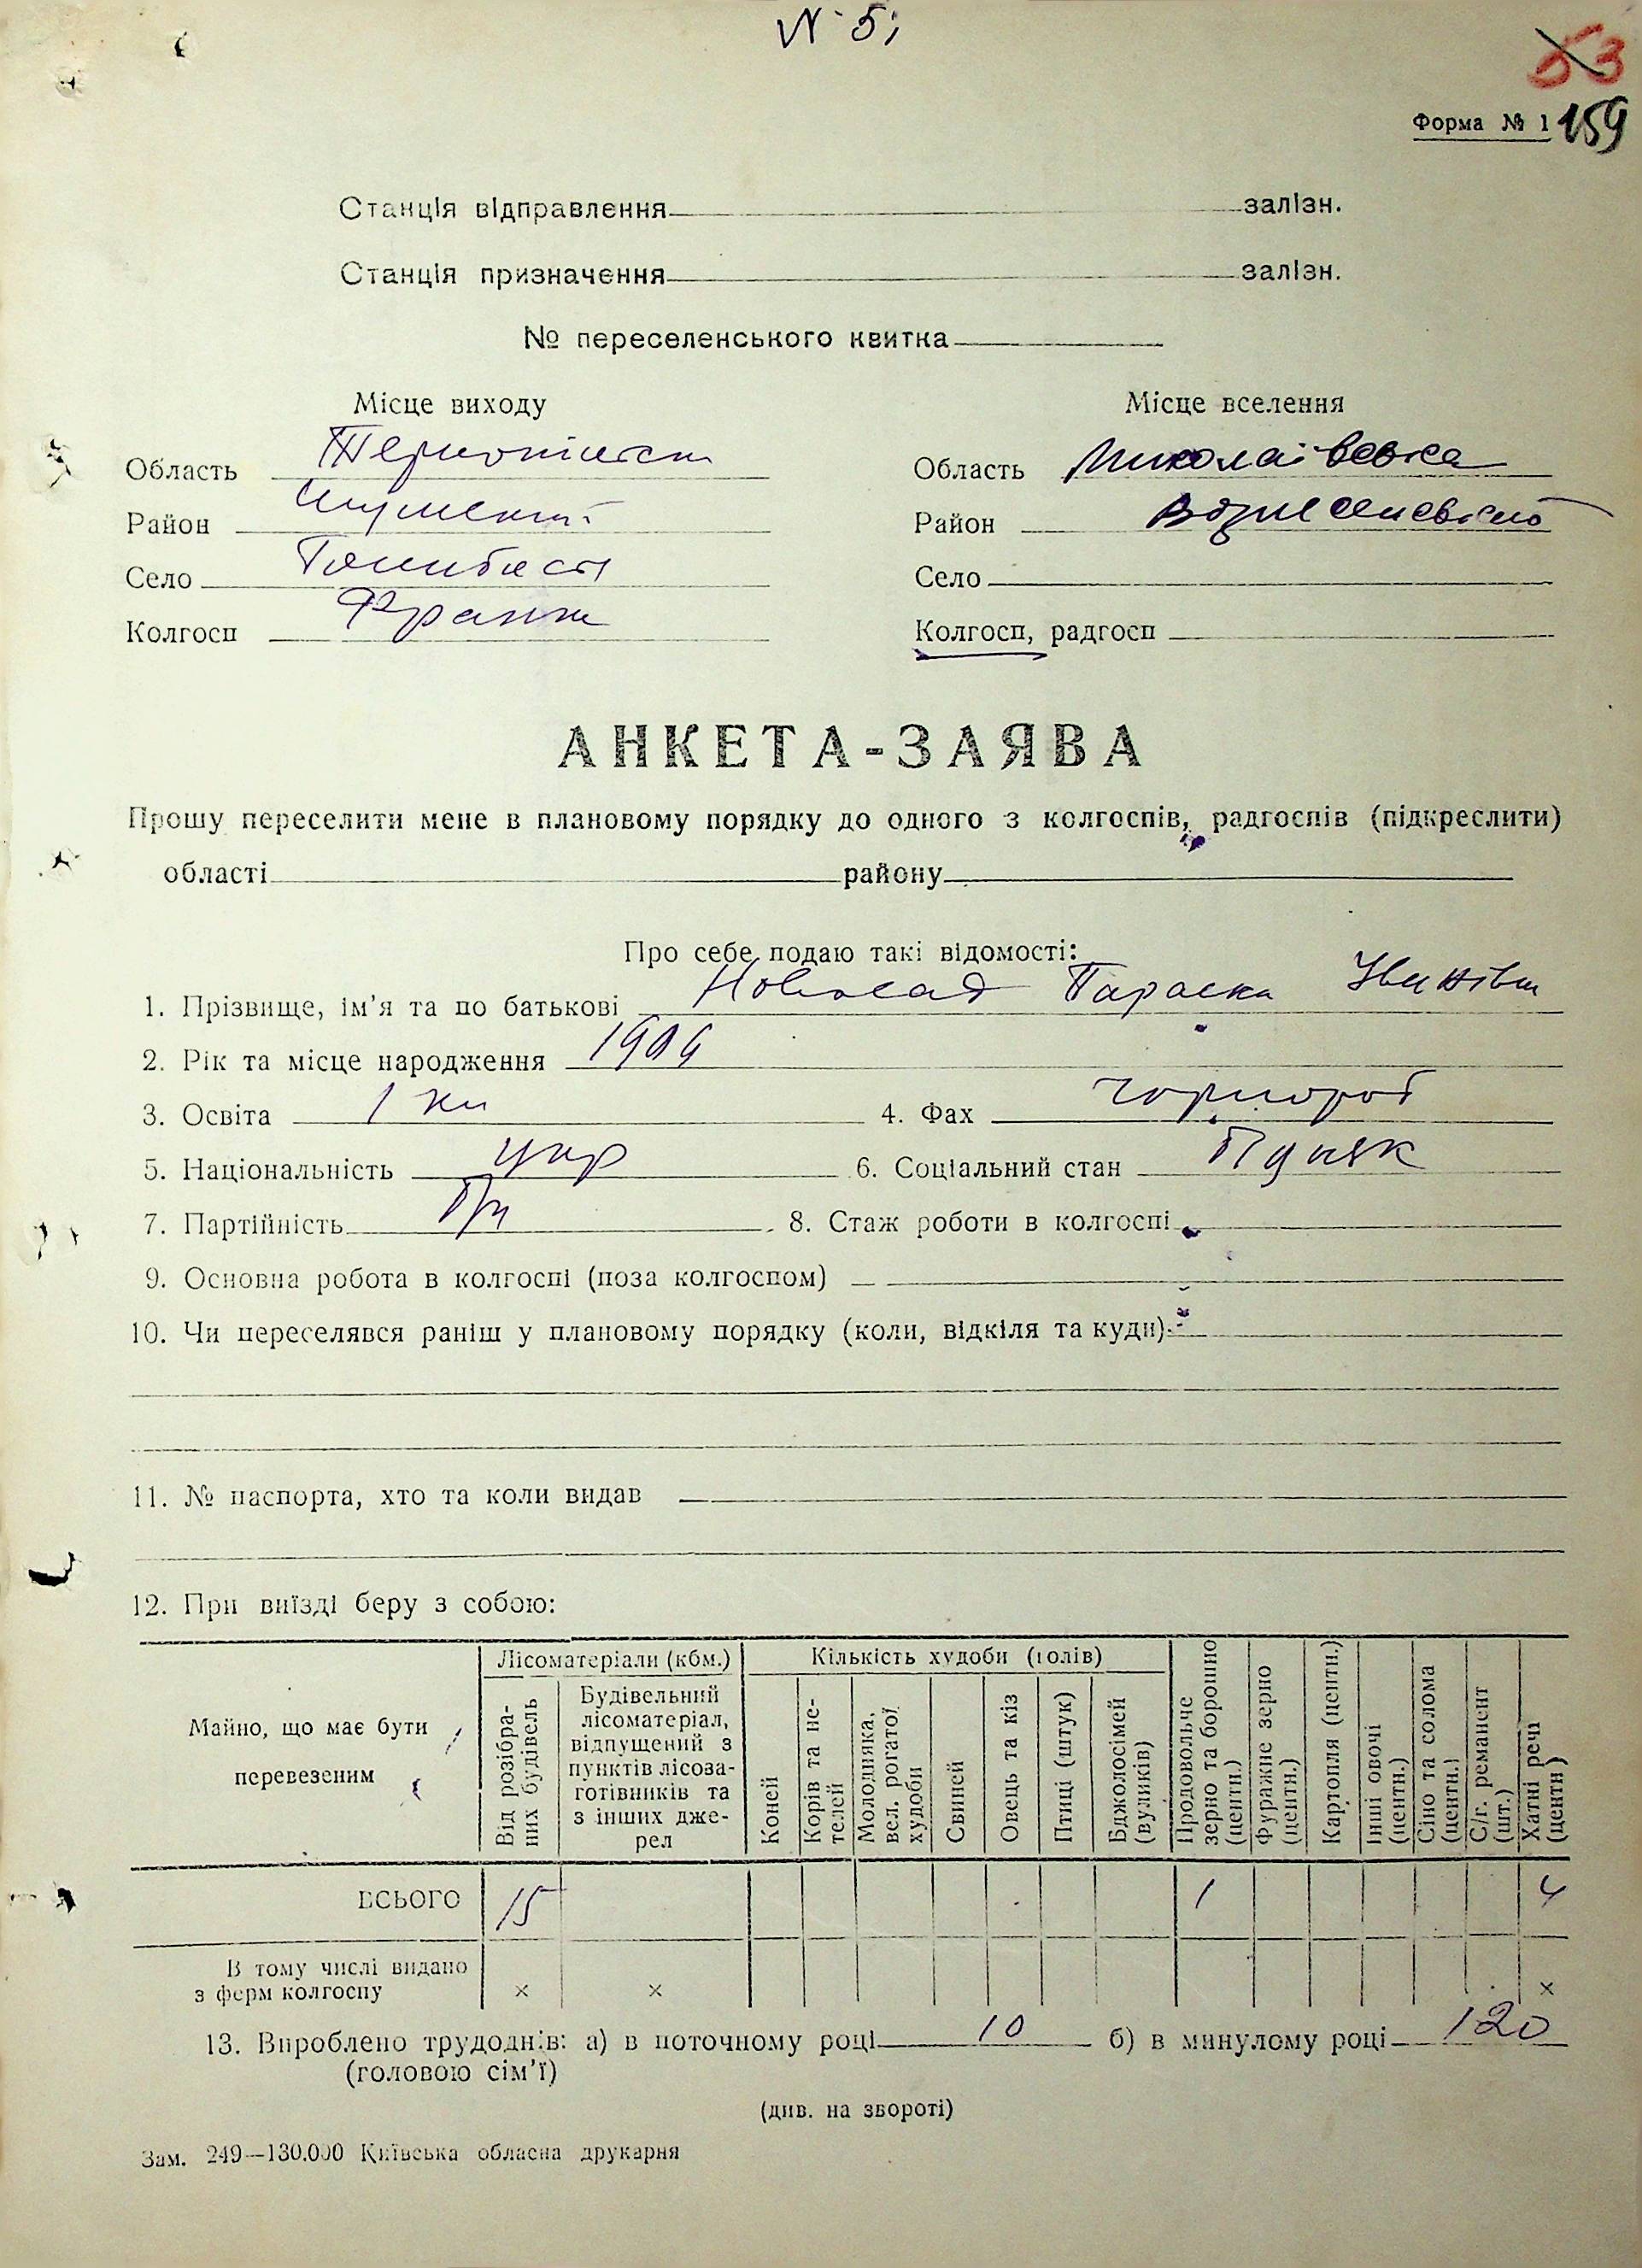 № 5;
53
Форма № 1 159
Станція відправлення залізн.
Станція призначення залізн.
№ переселенського квитка
Місце виходу Місце вселення
Область Область Миколаївська
Район Шумський Район Вознесенський
Село Село
Колгосп Франка Колгосп, радгосп
АНКЕТА-ЗАЯВА
Прошу переселити мене в плановому порядку до одного з колгоспів, радгоспів (підкреслити)
області району
Про себе подаю такі відомості:
1. Прізвище, ім’я та по батькові Новосад Параска
2. Рік та місце народження 1904
3. Освіта 1 кл 4. Фах чорнороб
5. Національність укр 6. Соціальний стан
7. Партійність б/п 8. Стаж роботи в колгоспі
9. Основна робота в колгоспі (поза колгоспом)
10. Чи переселявся раніш у плановому порядку (коли, відкіля та куди)
11. № паспорта, хто та коли видав
12. При виїзді беру з собою:
Майно, що має бути перевезеним
Лісоматеріали (кбм.)
Від розібраних будівель
Будівельний лісоматеріал, відпущений з пунктів лісозаготівників та з інших джерел
Кількість худоби (голів)
Коней
Корів та нетелей
Молодняка, вел. рогатої худоби
Свиней
Овець та кіз
Птиці (штук)
Бджолосімей (вуликів)
Продовольче зерно та борошно (центн.)
Фуражне зерно (центн.)
Картопля (центн.)
Інші овочі (центн.)
Сіно та солома (центн.)
С/г. реманент (шт.)
Хатні речі (центн)
ВСЬОГО 15 1 4
В тому числі видано
з ферм колгоспу × × ×
13. Вироблено трудоднів: а) в поточному році 10 б) в минулому році 120
(головою сім’ї)
(див. на звороті)
Зам. 249—130.000 Київська обласна друкарня